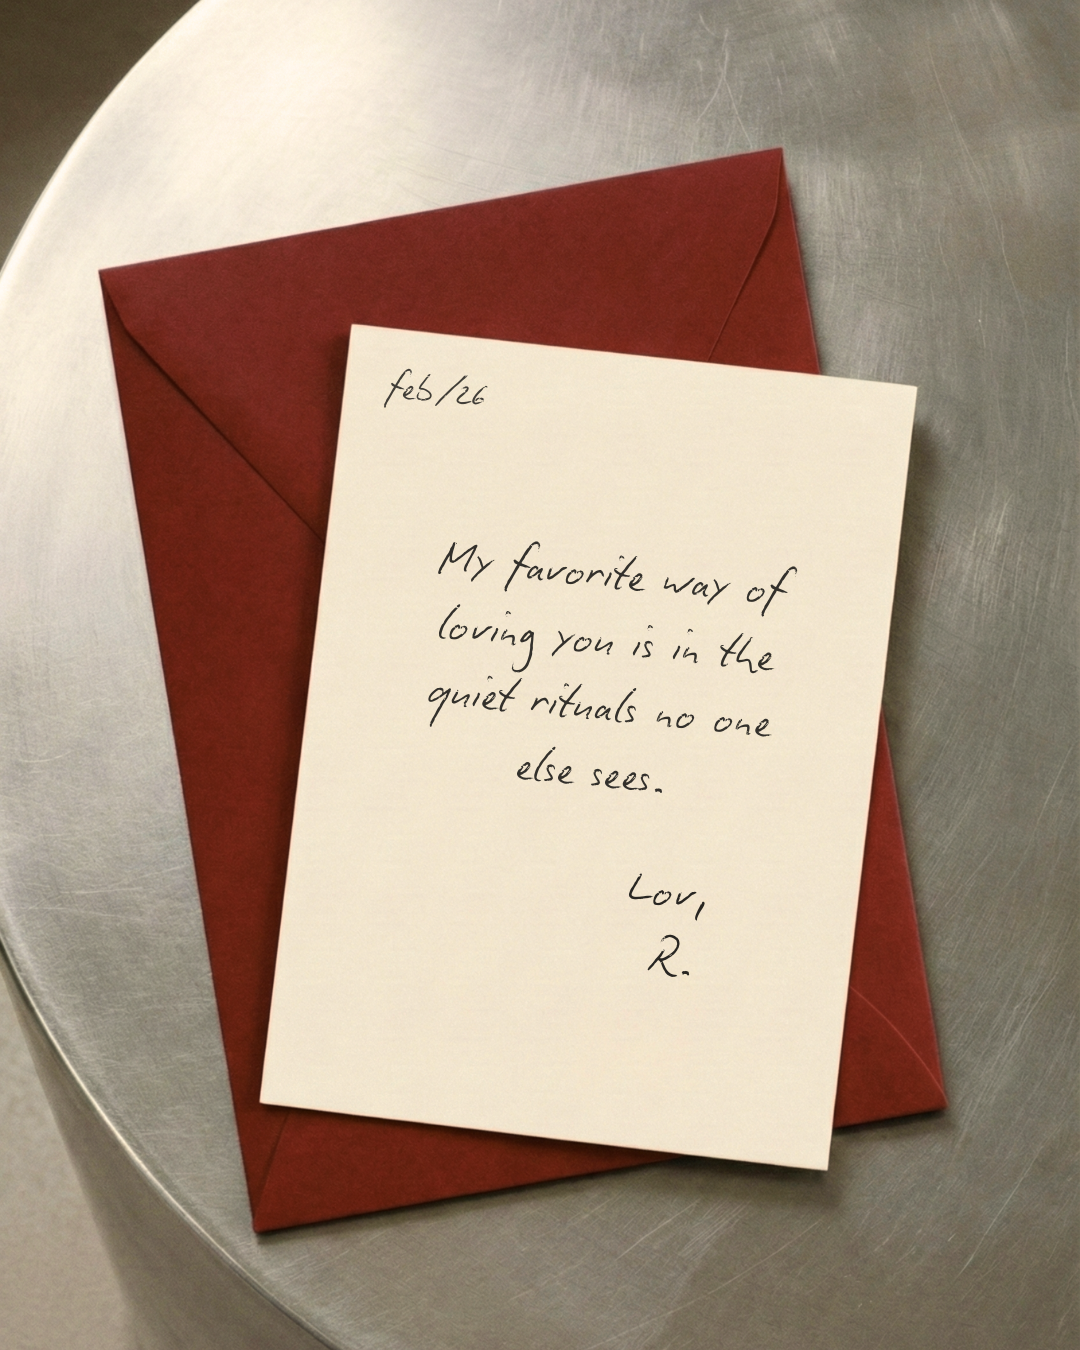 feb/26
My favorite way of
loving you is in the
quiet rituals no one
else sees.
Lov,
R.